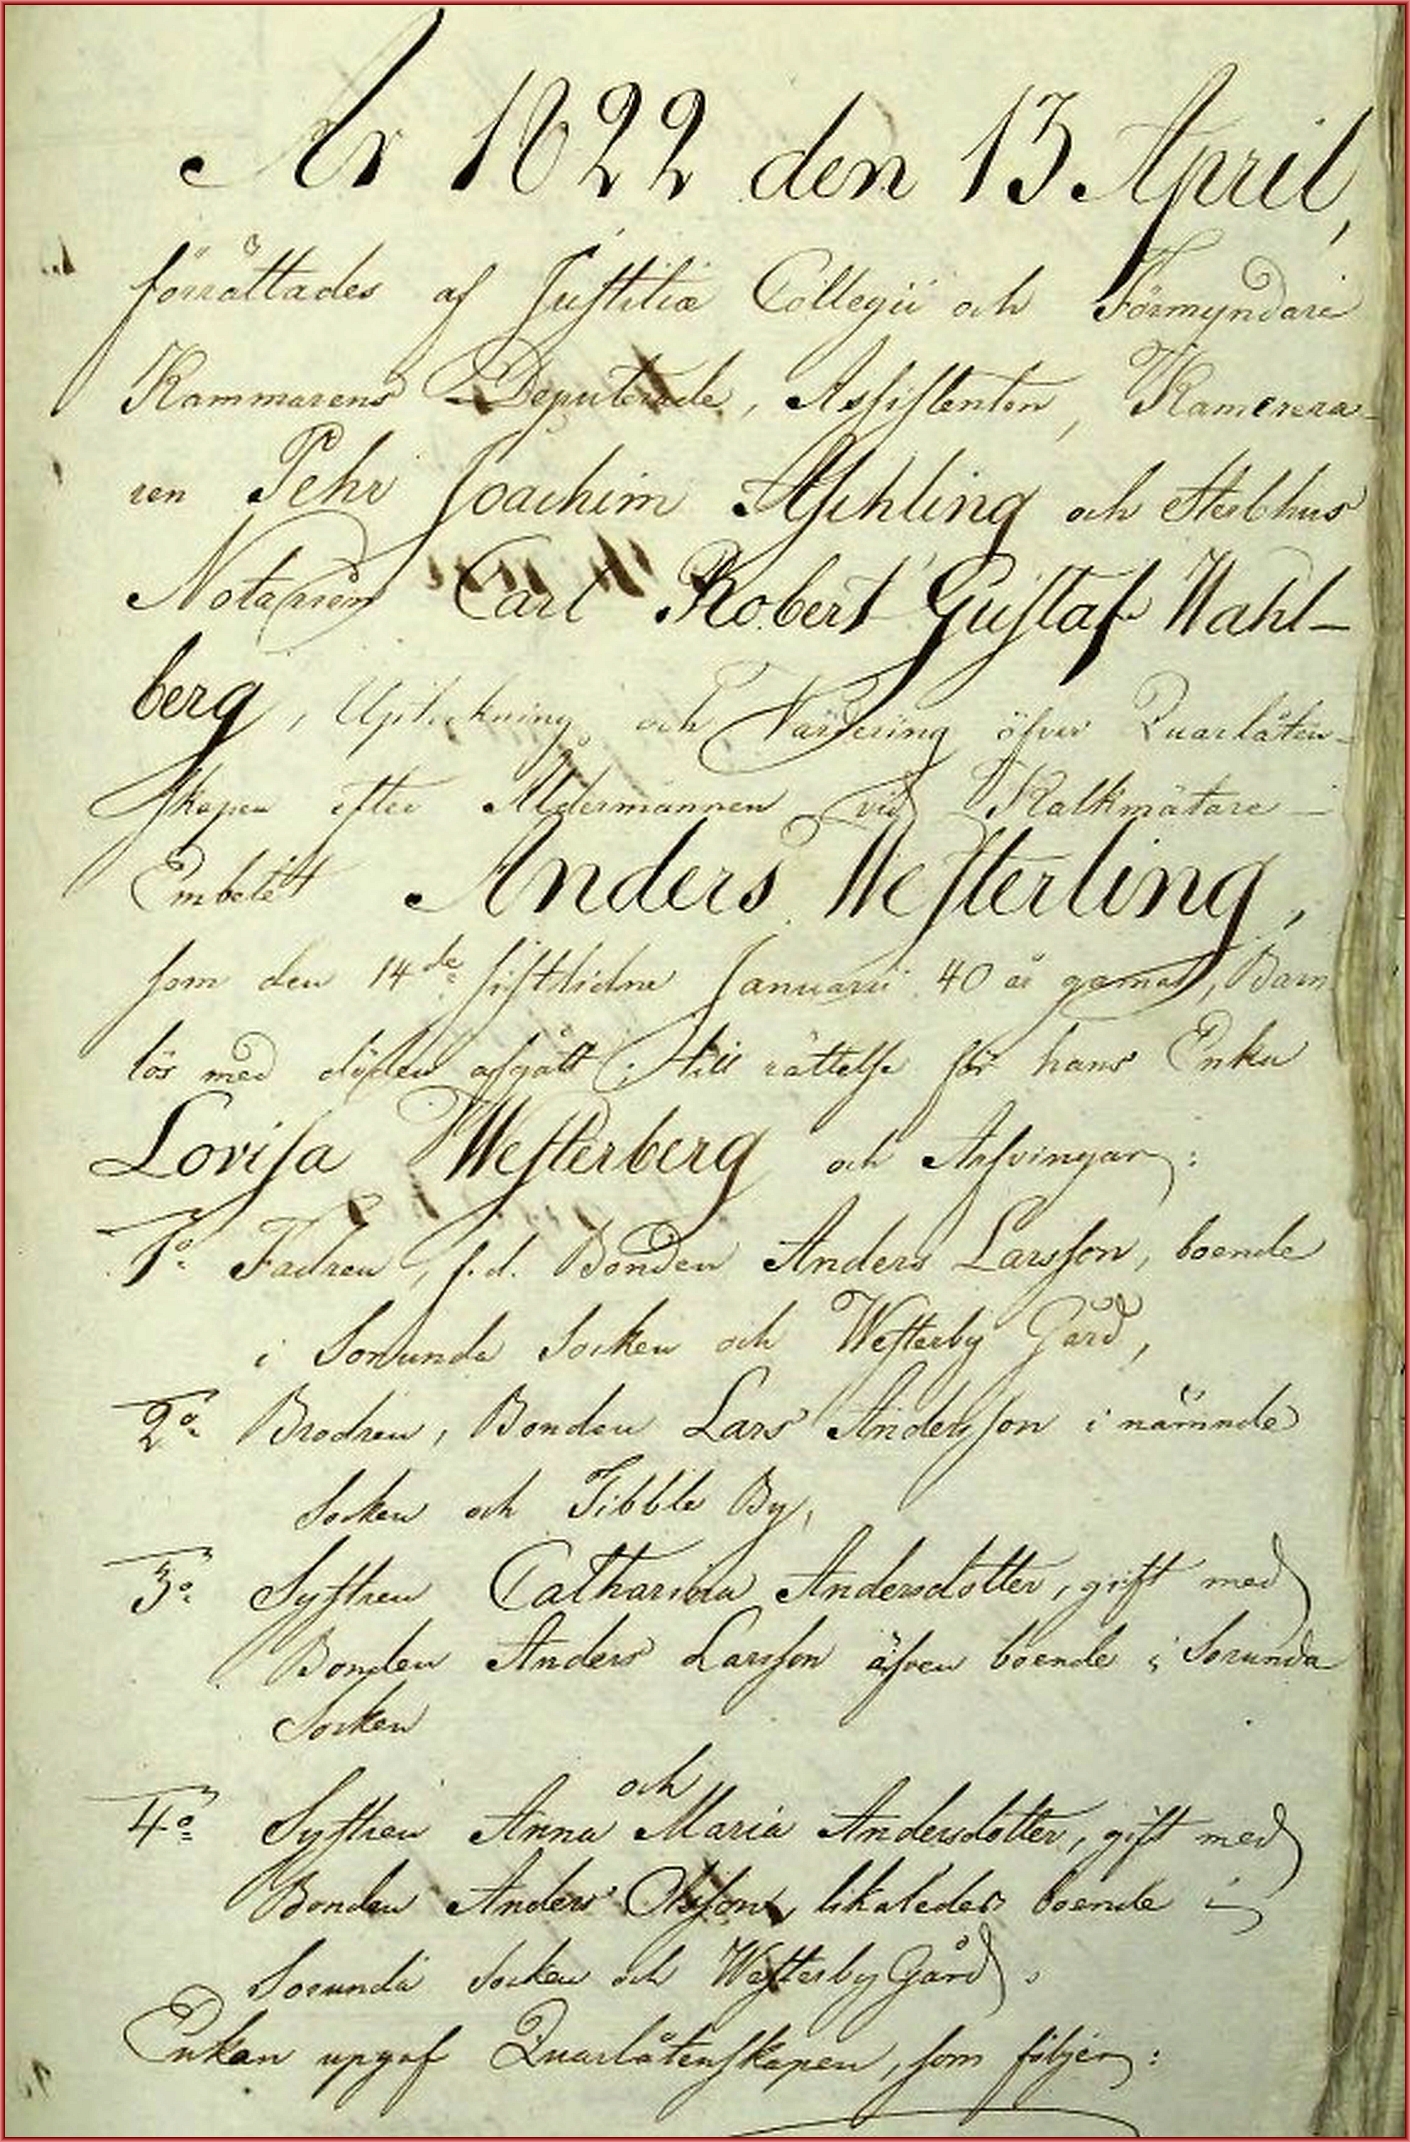 År 1822 den 13 April,
förrättades af Justitiæ Collegii och Förmyndare
Kammarens Deputerade, Assistenten, Kamerera-
ren Pehr Joachim Aschling och Sterbhus
Notarien Carl Robert Gustaf Wahl-
berg, Upteckning och Värdering öfver Quarlåten-
skapen efter Åldermannen vid Kalkmätare-
Embetet Anders Westerling,
som den 14de sistlidne Januarii 40 år gamal, Barn
lös med döden afgått; till rättelse för hans Enka
Lovisa Westerberg och Arfvingar:
1o Fadren, f.d. Bonden Anders Larsson, boende
i Sorunda Socken och Westerby Gård,
2o Brodren, Bonden Lars Andersson i nämnde
Socken och Fibble By,
3o Systren Catharina Andersdotter, gift med
Bonden Anders Larsson äfven boende i Sorunda
Socken
och
4o Systren Anna Maria Andersdotter, gift med
Bonden Anders Olsson, likaledes boende i
Sorunda Socken och Westerby Gård.
Enkan upgaf Quarlåtenskapen, som följer: